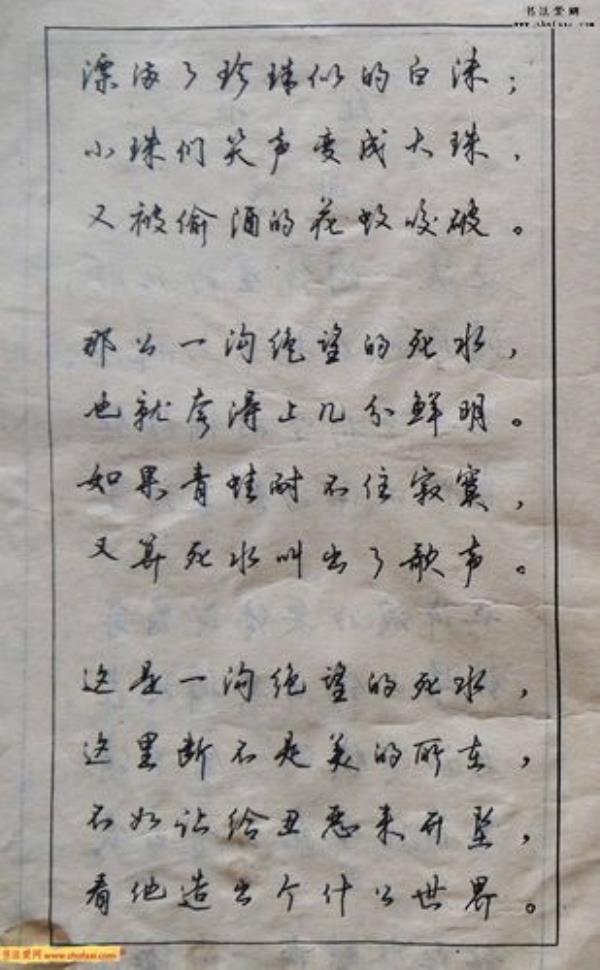 书法爱网
www.shufaai.com
漂满了珍珠似的白沫;
小珠们笑声变成大珠,
又被偷酒的花蚊咬破。
那么一沟绝望的死水,
也就夸得上几分鲜明。
如果青蛙耐不住寂寞,
又算死水叫出了歌声。
这是一沟绝望的死水,
这里断不是美的所在,
不如让给丑恶来开垦,
看他造出个什么世界。
书法爱网 www.shufaai.com